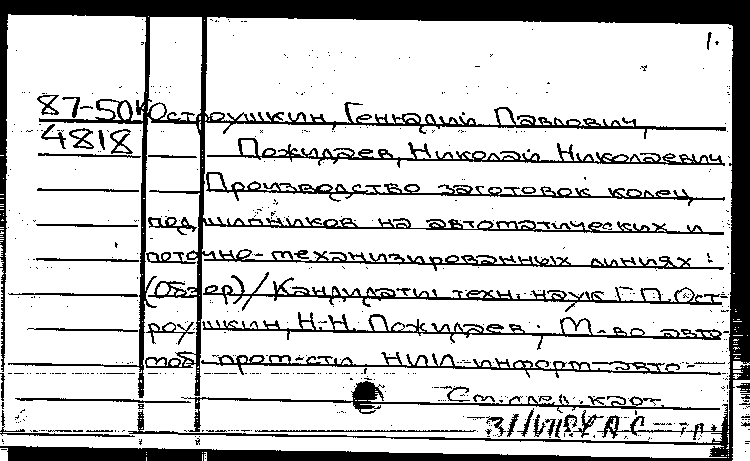 1.
87-50к Остроушкин, Геннадий Павлович,
4818 Пожидаев, Николай Николаевич.
Производство заготовок колец
подшипников на автоматических и
поточно-механизированных линиях :
(Обзор) / Кандидаты техн. наук Г.П. Ост-
роушкин, Н.Н. Пожидаев ; М-во авто-
моб. пром-сти, НИИ информ. авто-
См. след. карт.